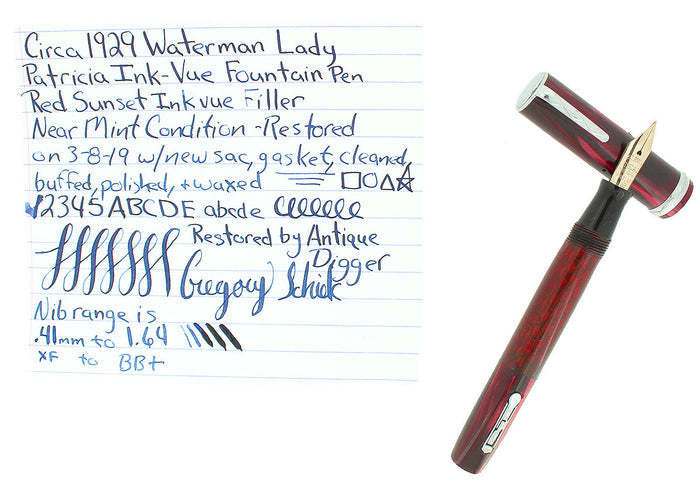 Circa 1929 Waterman Lady
Patricia Ink-Vue Fountain Pen
Red Sunset Inkvue Filler
Near Mint Condition - Restored
on 3-8-19 w/new sac, gasket, cleaned,
buffed, polished, + waxed
12345 ABCDE abcde
Restored by Antique
Digger
Gregory Schiek
Nib range is
.41mm to 1.64
XF to BB+